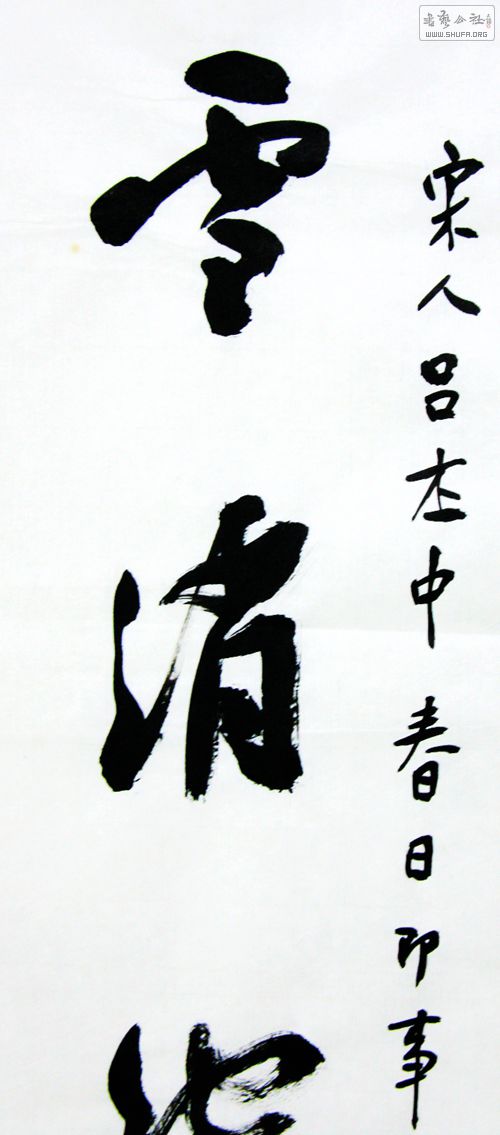 書藝公社
WWW.SHUFA.ORG
宋人吕本中春日即事
雪消池